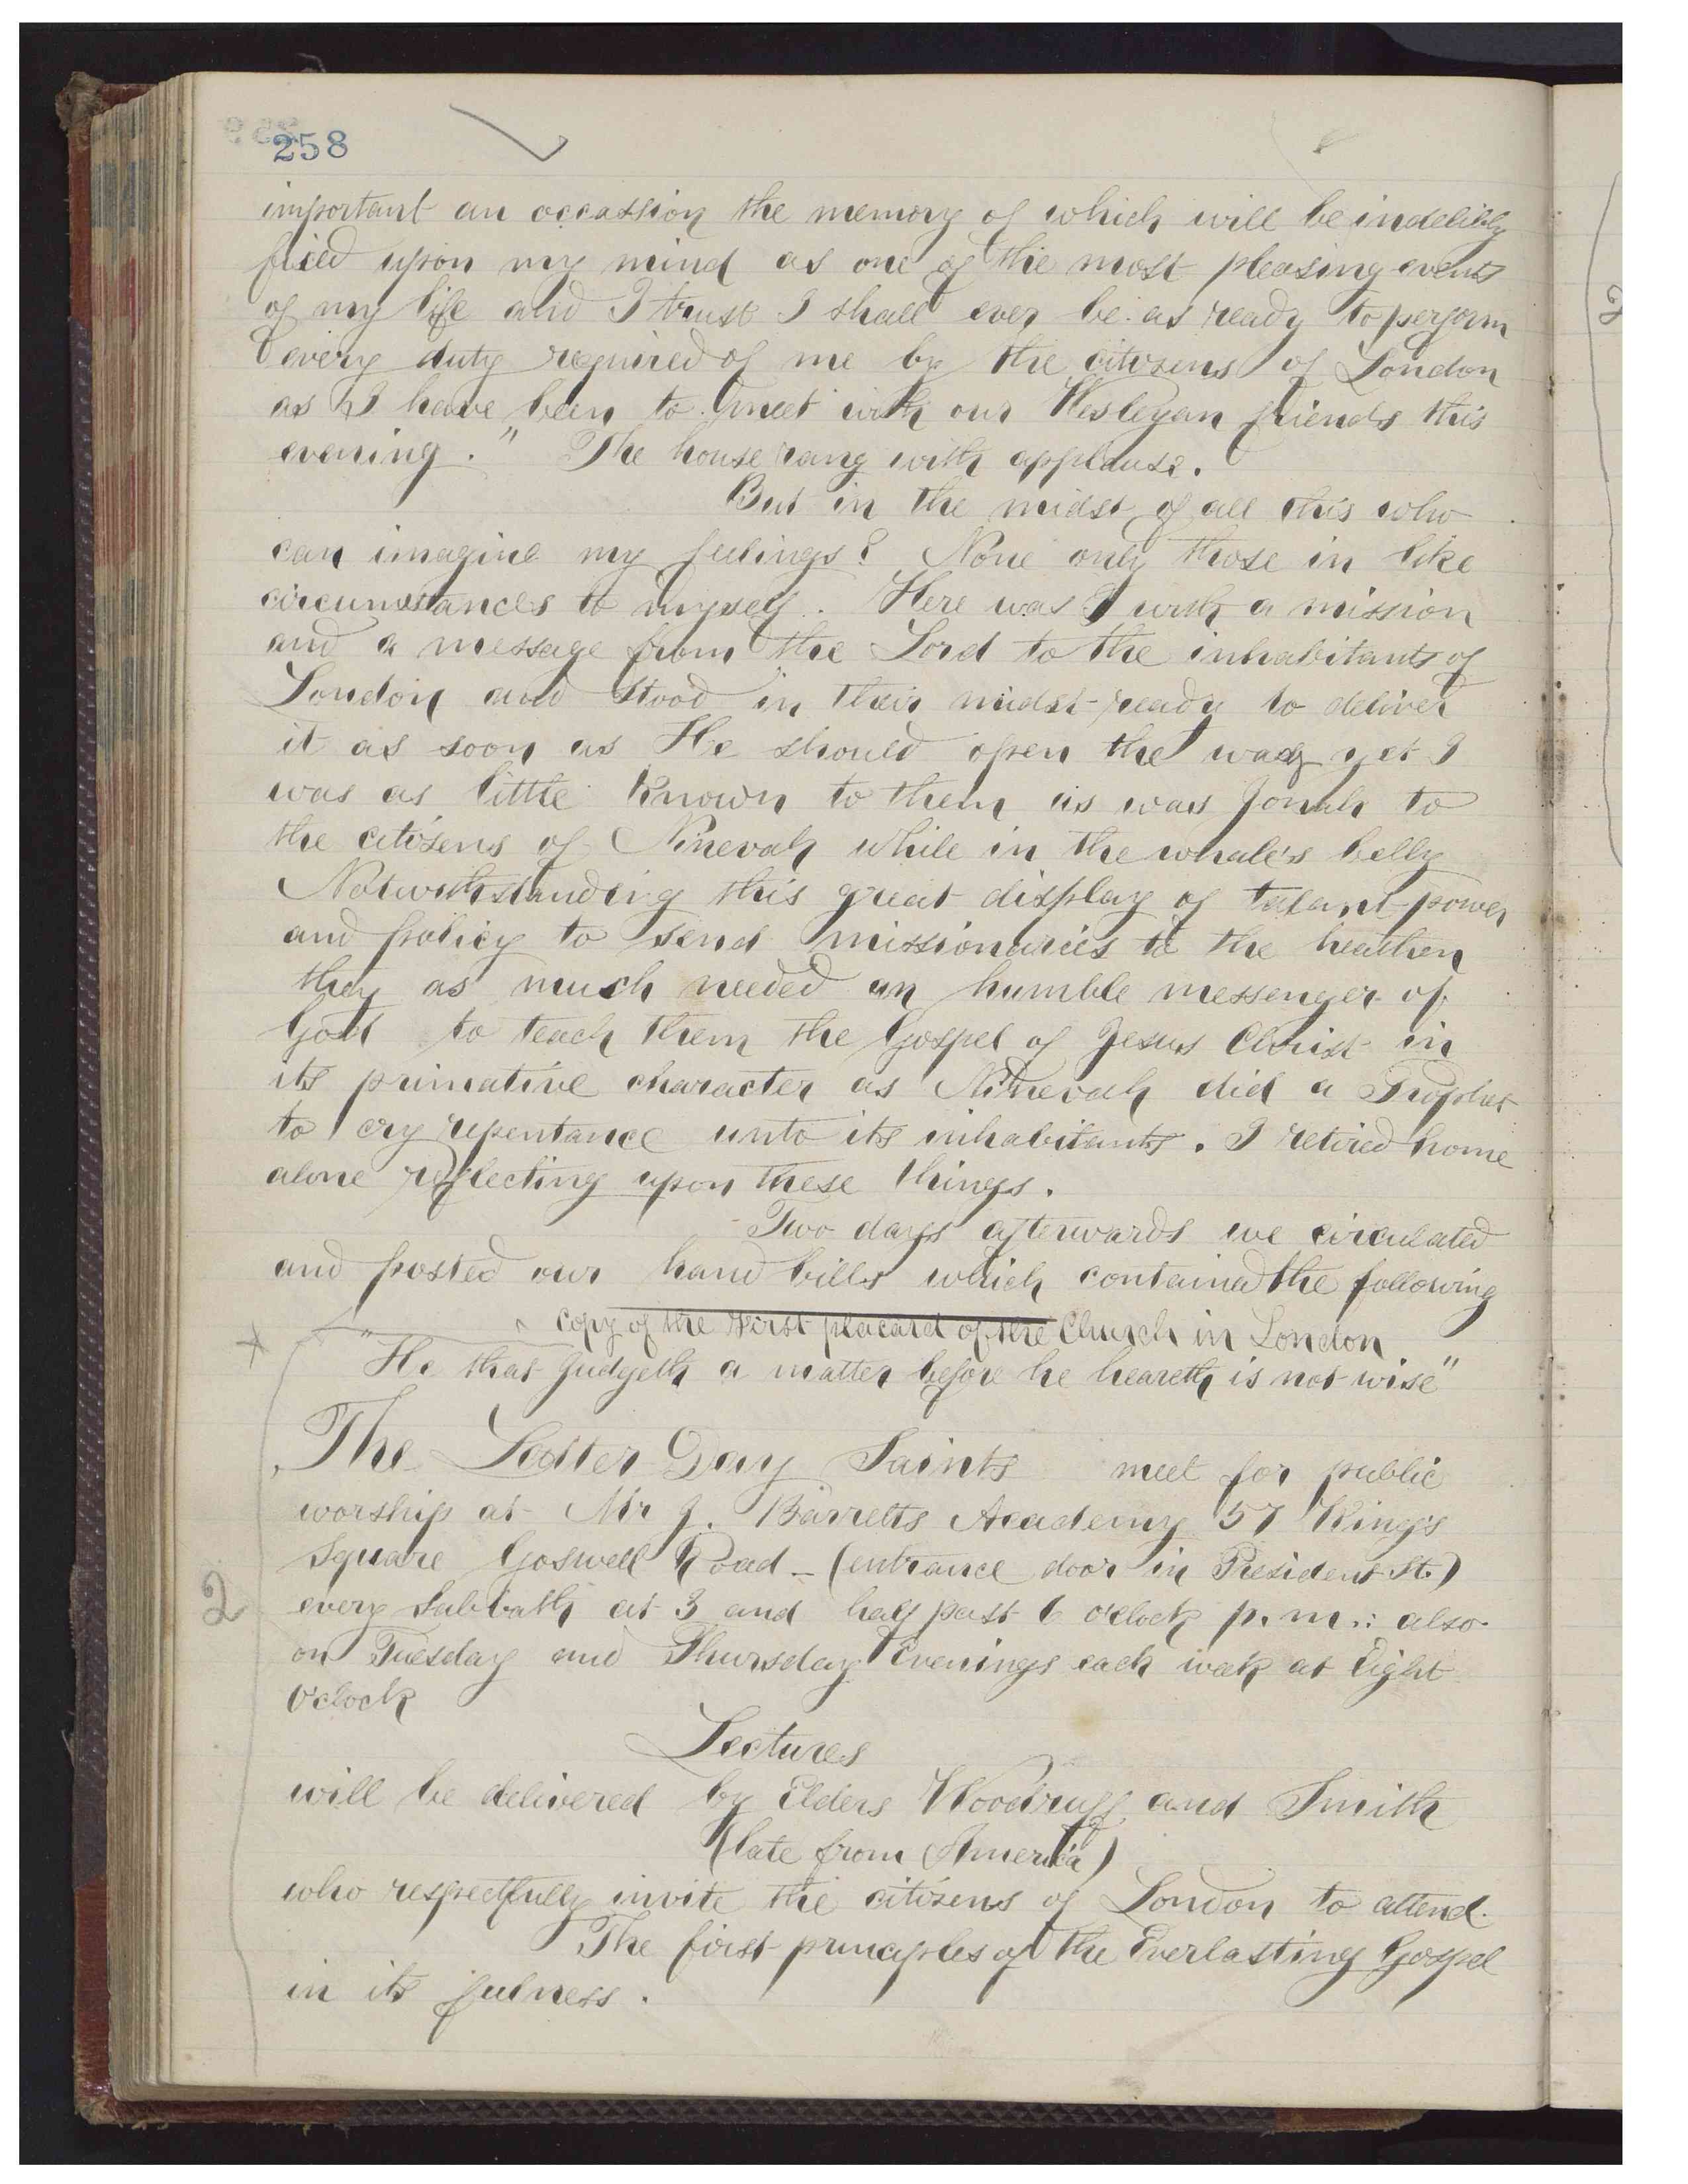 258
important an occassion the memory of which will be indelibly
fixed upon my mind as one of the most pleasing events
of my life and I trust I shall ever be as ready to perform
every duty required of me by the citizens of London
as I have been to meet with our Wesleyan friends this
evening." The house rang with applause.
But in the midst of all this who
can imagine my feelings? None only those in like
circumstances to myself. Here was I with a mission
and a message from the Lord to the inhabitants of
London and stood in their midst ready to deliver
it as soon as He should open the way yet I
was as little known to them as was Jonah to
the citizens of Ninevah while in the whale's belly
Notwithstanding this great display of talant power
and policy to send missionaries to the heathen
they as much needed an humble messenger of
God to teach them the Gospel of Jesus Christ in
its primative character as Ninevah did a Prophet
to cry repentance unto its inhabitants. I retired home
alone reflecting upon these things.
Two days afterwards we circulated
and posted our hand bills which contained the following
copy of the First placard of the Church in London
"He that Judgeth a matter before he heareth is not wise"
The Latter Day Saints meet for public
worship at Mr J. Barretts Academy 57 King's
Square Goswell Road - (entrance door in President St.)
2
every Sabbath at 3 and half past 6 o'clock p.m.: also
on Tuesday and Thursday Evenings each week at Eight
O'clock
Lectures
will be delivered by Elders Woodruff and Smith
(late from America)
who respectfully invite the citizens of London to attend.
The first principles of the Everlasting Gospel
in its fulness.